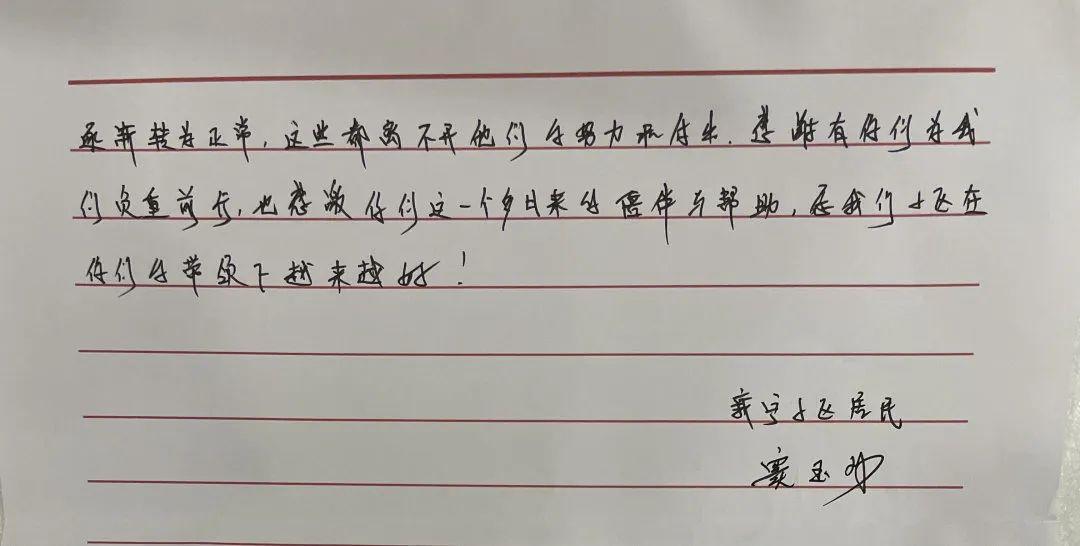 逐渐转为正常,这些都离不开他们的努力和付出.感谢有你们为我
们负重前行,也感激你们这一个多月来的陪伴与帮助,愿我们小区在
你们的带领下越来越好!
小区居民